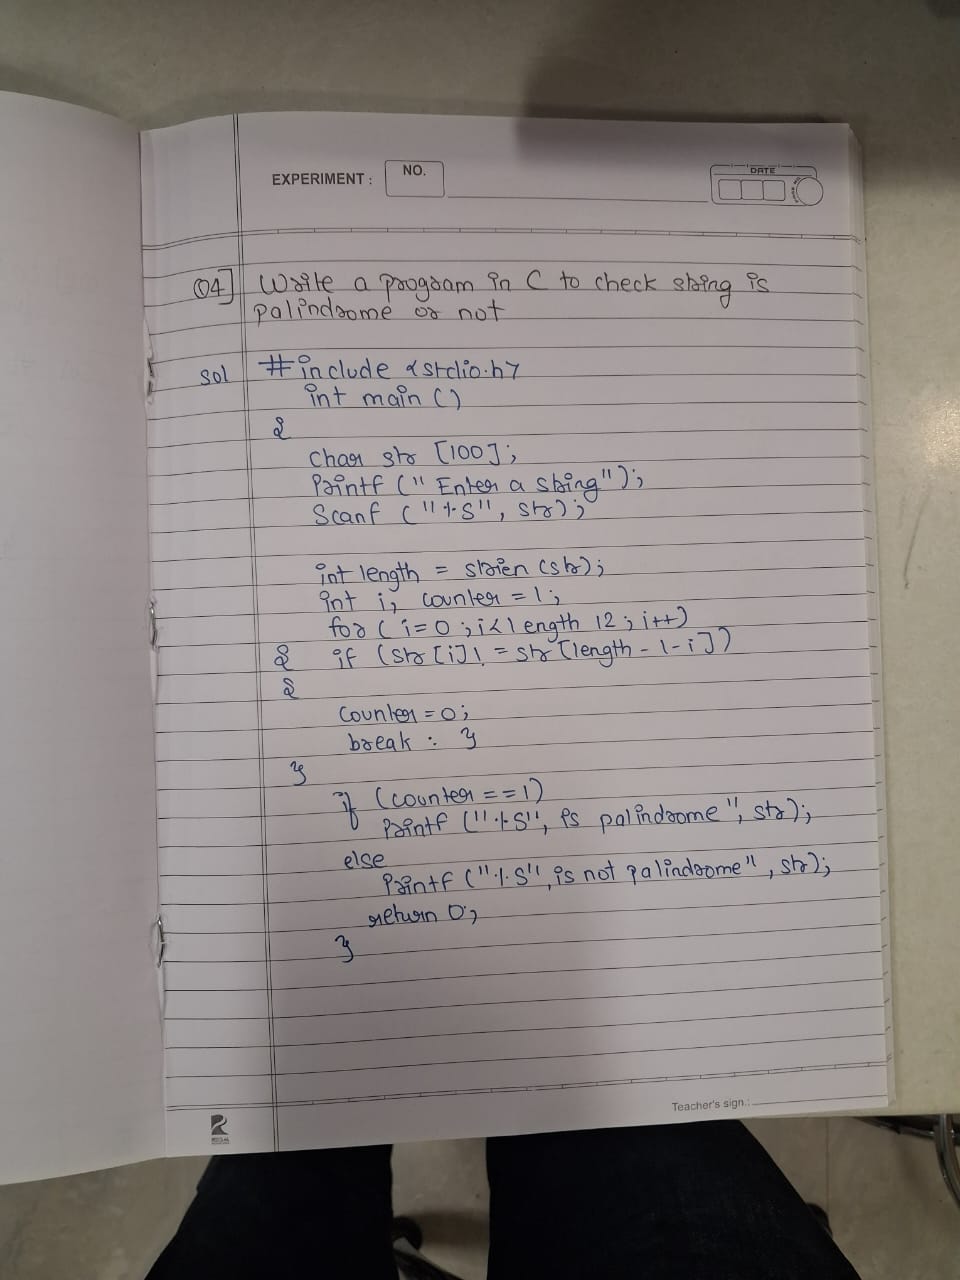 EXPERIMENT : NO.
DATE
Q4] Write a program in C to check string is
palindrome or not
Sol #include <stdio.h>
int main ()
{
char str [100];
Printf (" Enter a string");
Scanf ("%S", str);
int length = strlen (str);
int i, counter = 1;
for ( i=0 ; i<length / 2 ; i++)
{ if (str [i] != str [length - 1 - i])
{
counter = 0;
break : }
}
if (counter == 1)
Printf ("%S", is palindrome", str);
else
Printf ("%S", is not palindrome", str);
return 0;
}
Teacher's sign.: